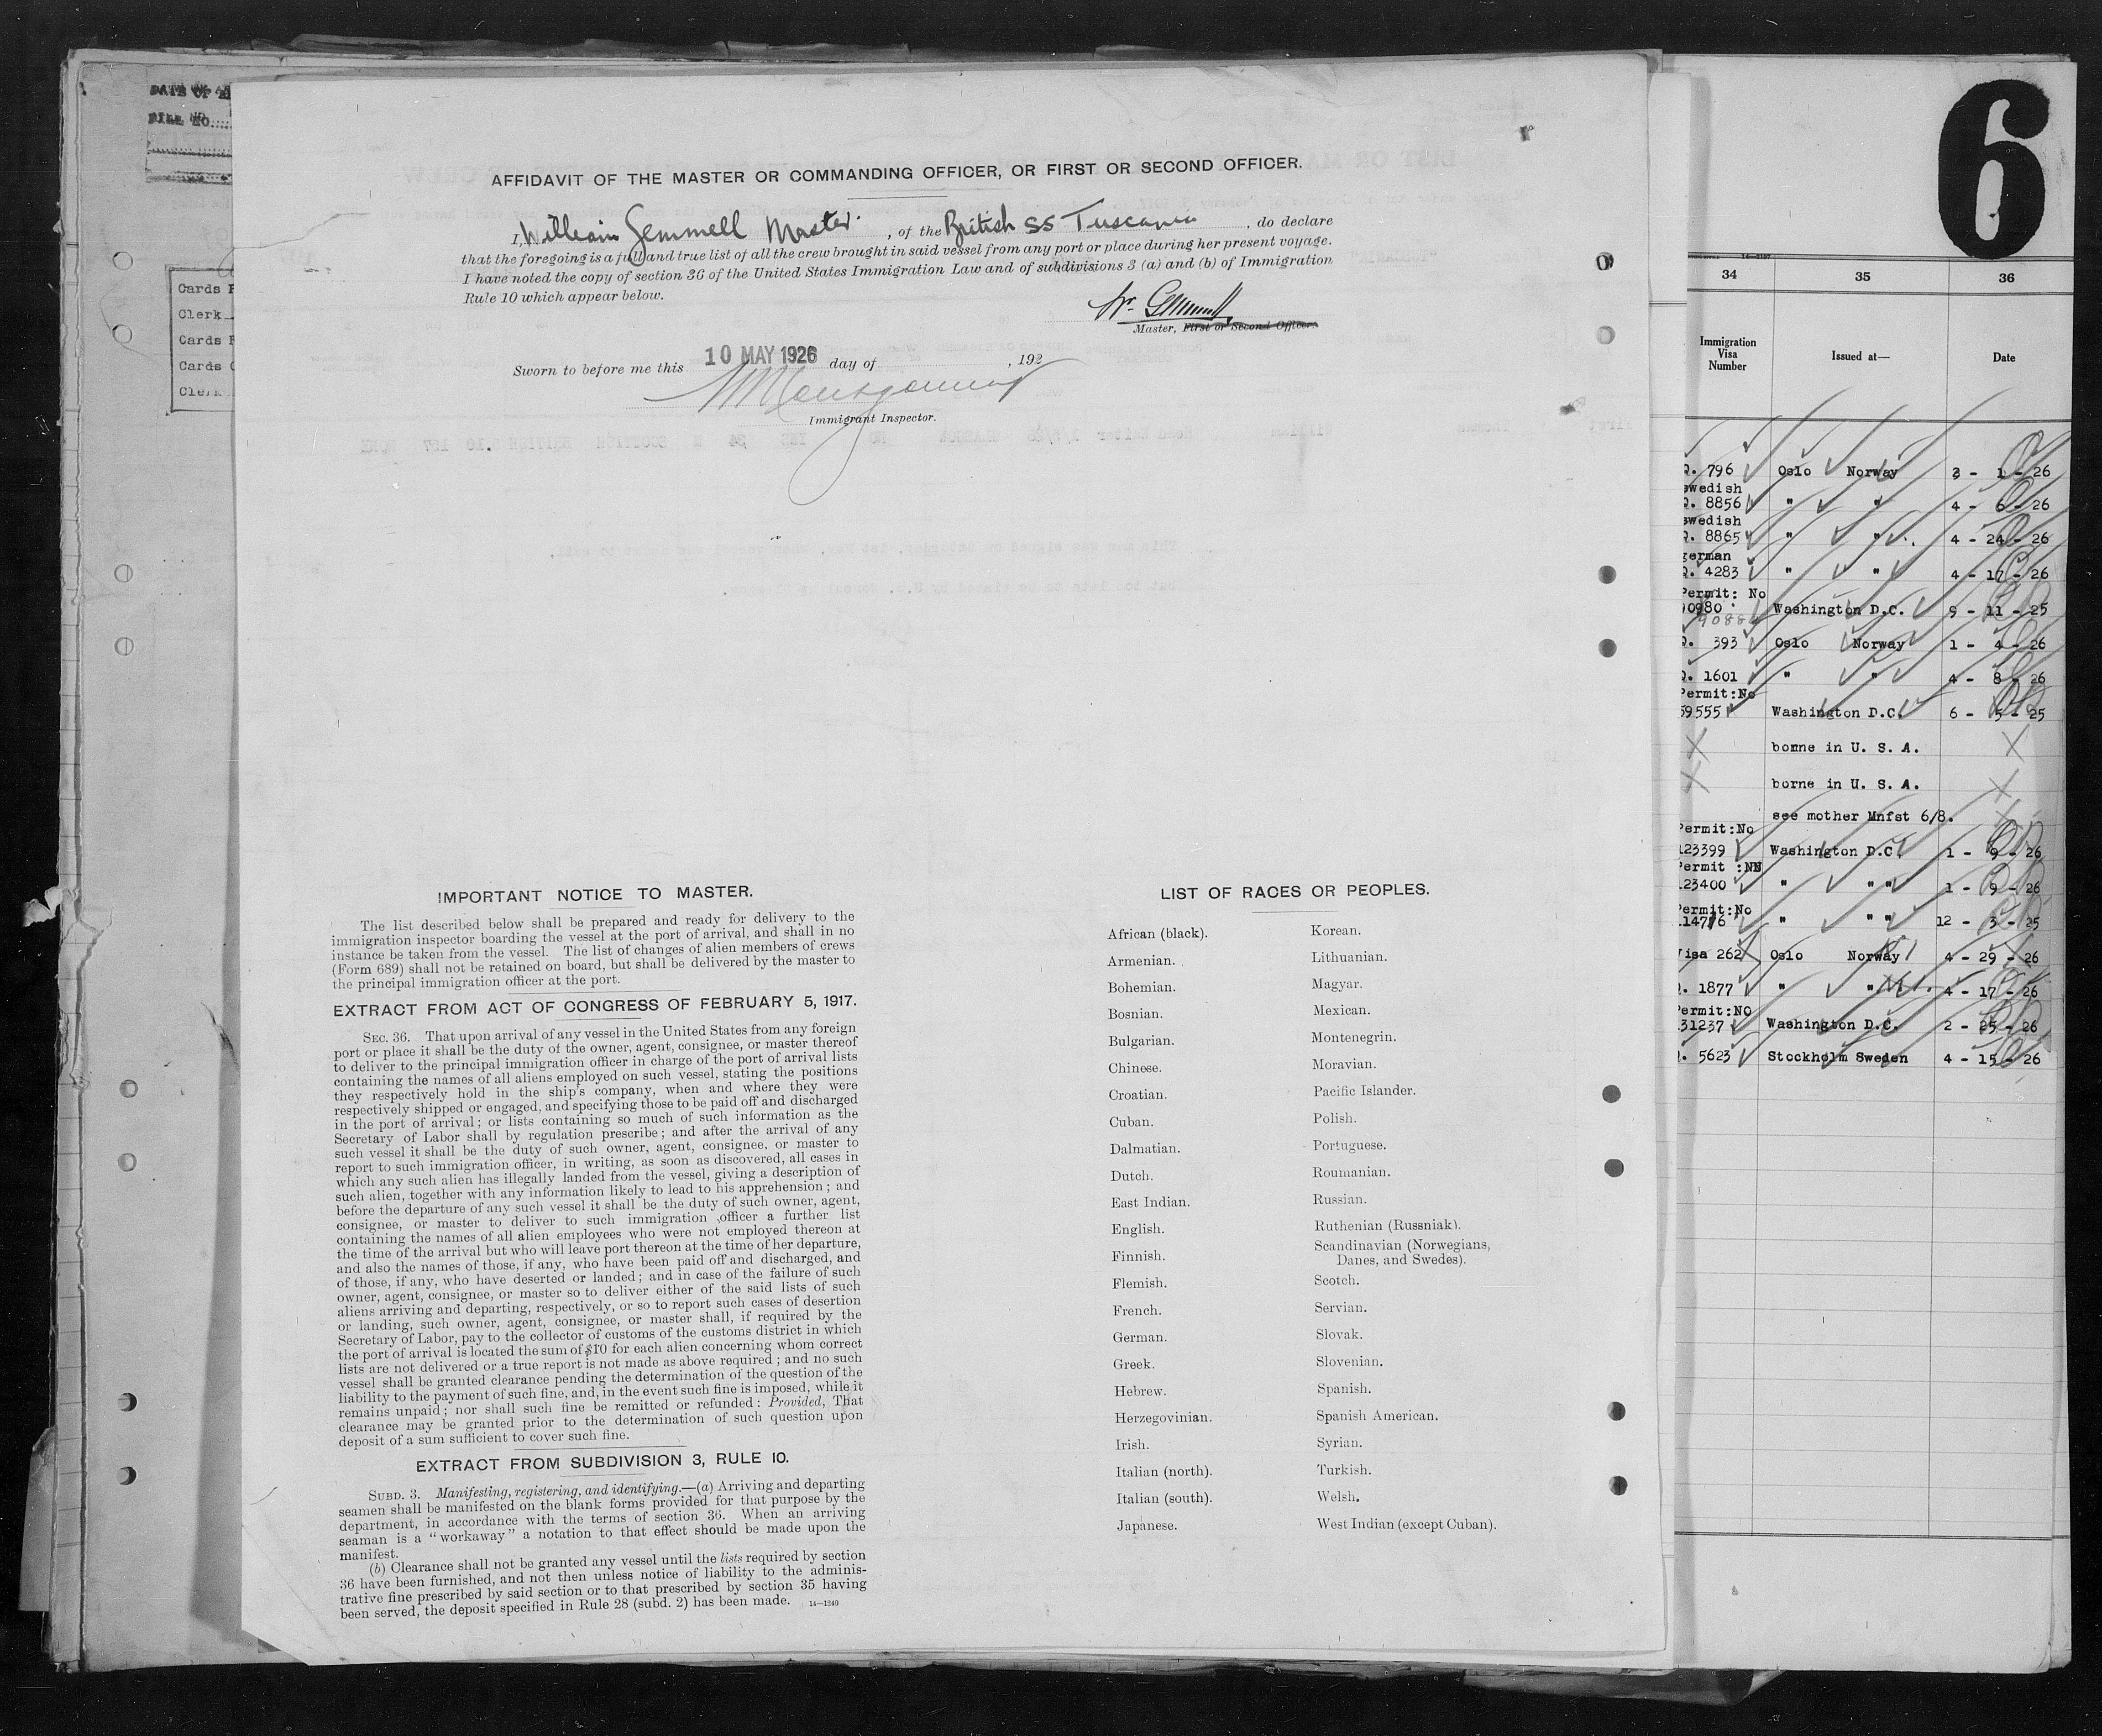 DATE OF
FILE NO.
Cards
Clerk
Cards
Cards
Clerk
AFFIDAVIT OF THE MASTER OR COMMANDING OFFICER, OR FIRST OR SECOND OFFICER.
I, William Gemmell Master, of the British SS Tuscania, do declare
that the foregoing is a full and true list of all the crew brought in said vessel from any port or place during her present voyage.
I have noted the copy of section 36 of the United States Immigration Law and of subdivisions 3 (a) and (b) of Immigration
Rule 10 which appear below.
Wm Gemmell
Master, First or Second Officer.
Sworn to before me this 10 MAY 1926 day of , 192
Montgomery
Immigrant Inspector.
IMPORTANT NOTICE TO MASTER.
The list described below shall be prepared and ready for delivery to the
immigration inspector boarding the vessel at the port of arrival, and shall in no
instance be taken from the vessel. The list of changes of alien members of crews
(Form 689) shall not be retained on board, but shall be delivered by the master to
the principal immigration officer at the port.
EXTRACT FROM ACT OF CONGRESS OF FEBRUARY 5, 1917.
SEC. 36. That upon arrival of any vessel in the United States from any foreign
port or place it shall be the duty of the owner, agent, consignee, or master thereof
to deliver to the principal immigration officer in charge of the port of arrival lists
containing the names of all aliens employed on such vessel, stating the positions
they respectively hold in the ship's company, when and where they were
respectively shipped or engaged, and specifying those to be paid off and discharged
in the port of arrival; or lists containing so much of such information as the
Secretary of Labor shall by regulation prescribe; and after the arrival of any
such vessel it shall be the duty of such owner, agent, consignee, or master to
report to such immigration officer, in writing, as soon as discovered, all cases in
which any such alien has illegally landed from the vessel, giving a description of
such alien, together with any information likely to lead to his apprehension; and
before the departure of any such vessel it shall be the duty of such owner, agent,
consignee, or master to deliver to such immigration officer a further list
containing the names of all alien employees who were not employed thereon at
the time of the arrival but who will leave port thereon at the time of her departure,
and also the names of those, if any, who have been paid off and discharged, and
of those, if any, who have deserted or landed; and in case of the failure of such
owner, agent, consignee, or master so to deliver either of the said lists of such
aliens arriving and departing, respectively, or so to report such cases of desertion
or landing, such owner, agent, consignee, or master shall, if required by the
Secretary of Labor, pay to the collector of customs of the customs district in which
the port of arrival is located the sum of $10 for each alien concerning whom correct
lists are not delivered or a true report is not made as above required; and no such
vessel shall be granted clearance pending the determination of the question of the
liability to the payment of such fine, and, in the event such fine is imposed, while it
remains unpaid; nor shall such fine be remitted or refunded: Provided, That
clearance may be granted prior to the determination of such question upon
deposit of a sum sufficient to cover such fine.
EXTRACT FROM SUBDIVISION 3, RULE 10.
SUBD. 3. Manifesting, registering, and identifying.—(a) Arriving and departing
seamen shall be manifested on the blank forms provided for that purpose by the
department, in accordance with the terms of section 36. When an arriving
seaman is a "workaway" a notation to that effect should be made upon the
manifest.
(b) Clearance shall not be granted any vessel until the lists required by section
36 have been furnished, and not then unless notice of liability to the adminis-
trative fine prescribed by said section or to that prescribed by section 35 having
been served, the deposit specified in Rule 28 (subd. 2) has been made. 14—1240
LIST OF RACES OR PEOPLES.
African (black).
Armenian.
Bohemian.
Bosnian.
Bulgarian.
Chinese.
Croatian.
Cuban.
Dalmatian.
Dutch.
East Indian.
English.
Finnish.
Flemish.
French.
German.
Greek.
Hebrew.
Herzegovinian.
Irish.
Italian (north).
Italian (south).
Japanese.
Korean.
Lithuanian.
Magyar.
Mexican.
Montenegrin.
Moravian.
Pacific Islander.
Polish.
Portuguese.
Roumanian.
Russian.
Ruthenian (Russniak).
Scandinavian (Norwegians,
Danes, and Swedes).
Scotch.
Servian.
Slovak.
Slovenian.
Spanish.
Spanish American.
Syrian.
Turkish.
Welsh.
West Indian (except Cuban).
6
34 35 36
Immigration
Visa
Number
Issued at—
Date
Q. 796 Oslo Norway 3 - 1 - 26
swedish
Q. 8856 " " 4 - 6 - 26
swedish
Q. 8865 " " 4 - 24 - 26
german
Q. 4283 " " 4 - 17 - 26
Permit: No
90980 Washington D.C. 9 - 11 - 25
Q. 393 Oslo Norway 1 - 4 - 26
Q. 1601 " " 4 - 8 - 26
Permit:No
59555 Washington D.C. 6 - 5 - 25
X borne in U. S. A. X
X borne in U. S. A. X
see mother Mnfst 6/8.
Permit:No
123399 Washington D.C. 1 - 9 - 26
Permit :NN
123400 " " " 1 - 9 - 26
Permit:No
" " " 12 - 3 - 25
Visa 262 Oslo Norway 4 - 29 - 26
Q. 1877 " " 4 - 17 - 26
Permit:NO
131237 Washington D.C. 2 - 25 - 26
Q. 5623 Stockholm Sweden 4 - 15 - 26